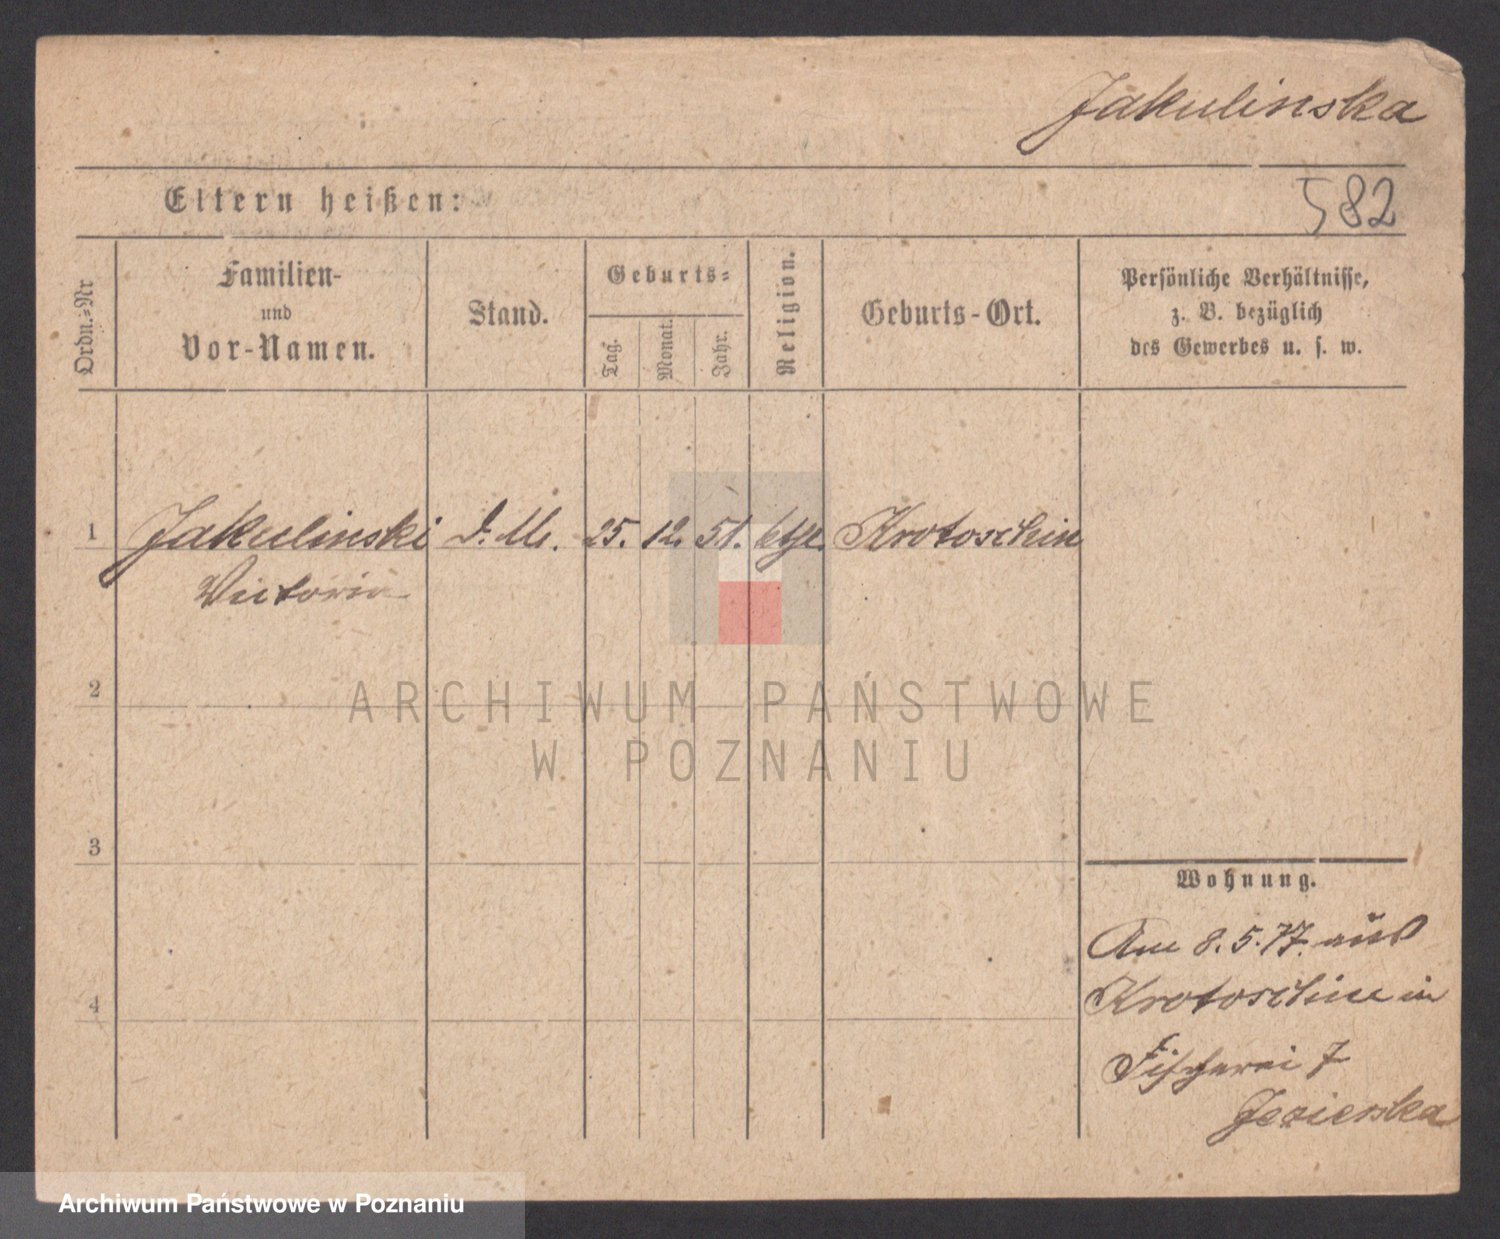 Jakulinska
Eltern heißen:
582
Ordn.-Nr
Familien-
und
Vor-Namen.
Stand.
Geburts-
Tag.
Monat.
Jahr.
Religion.
Geburts-Ort.
Persönliche Verhältnisse,
z. B. bezüglich
des Gewerbes u. s. w.
1 Jakulinski D. M. 25. 12. 51. Krotoschin
Victoria
2
ARCHIWUM PAŃSTWOWE
W POZNANIU
3
4
Wohnung.
Am 8.5.77. aus
Krotoschin in
Fischerei 7
Jezierska
Archiwum Państwowe w Poznaniu